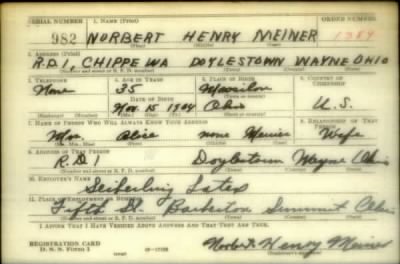 SERIAL NUMBER 1. NAME (Print) ORDER NUMBER
982 NORBERT HENRY MEINER 1384
(First) (Middle) (Last)
2. ADDRESS (Print)
R.D.1, CHIPPEWA DOYLESTOWN WAYNE OHIO
(Number and street or R. F. D. number) (Town) (County) (State)
3. TELEPHONE 4. AGE IN YEARS 5. PLACE OF BIRTH 6. COUNTRY OF CITIZENSHIP
None 35 Massilon
DATE OF BIRTH
Nov. 15 1904 Ohio U.S.
7. NAME OF PERSON WHO WILL ALWAYS KNOW YOUR ADDRESS 8. RELATIONSHIP OF THAT PERSON
Mrs. Alice none Meiner Wife
9. ADDRESS OF THAT PERSON
R.D 1 Doylestown Wayne Ohio
(Number and street or R. F. D. number) (Town) (County) (State)
10. EMPLOYER'S NAME
Seiberling Latex
11. PLACE OF EMPLOYMENT OR BUSINESS
Fifth St. Barberton Summit Ohio
(Number and street or R. F. D. number) (Town) (County) (State)
I AFFIRM THAT I HAVE VERIFIED ABOVE ANSWERS AND THAT THEY ARE TRUE.
REGISTRATION CARD
D. S. S. FORM 1 Norbert Henry Meiner